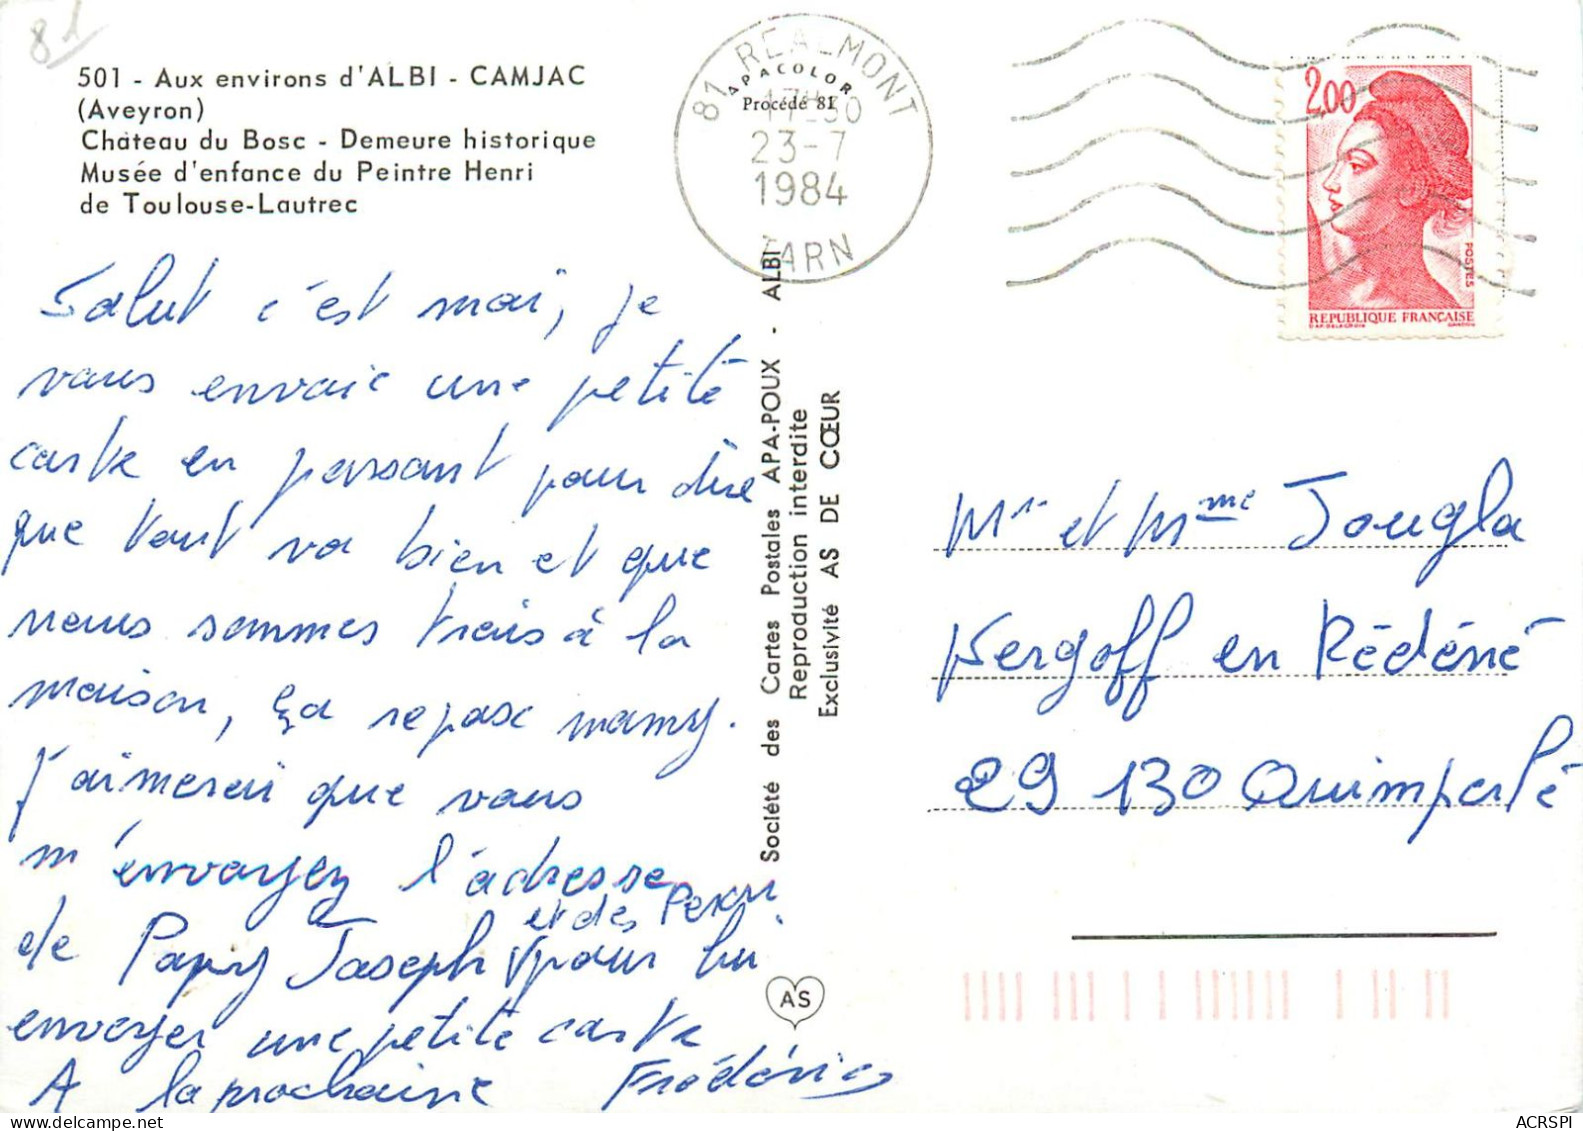 81
501 - Aux environs d'ALBI - CAMJAC
(Aveyron)
Château du Bosc - Demeure historique
Musée d'enfance du Peintre Henri
de Toulouse-Lautrec
81 REALMONT
APACOLOR
Procédé 81
17-30
23-7
1984
TARN
2,00
POSTES
REPUBLIQUE FRANÇAISE
Salut c'est moi, je
vous envoie une petite
carte en passant pour dire
que tout va bien et que
nous sommes trois à la
maison, ça repose mamy.
J'aimerai que vous
m'envoyez l'adresse
et des
de Papy Joseph pour lui
envoyer une petite carte
A la prochaine Frédéric
Société des Cartes Postales APA-POUX - ALBI
Reproduction interdite
Exclusivité AS DE CŒUR
AS
Mr et Mme Jougla
Kergoff en Rédéné
29 130 Quimperlé
ACRSPI